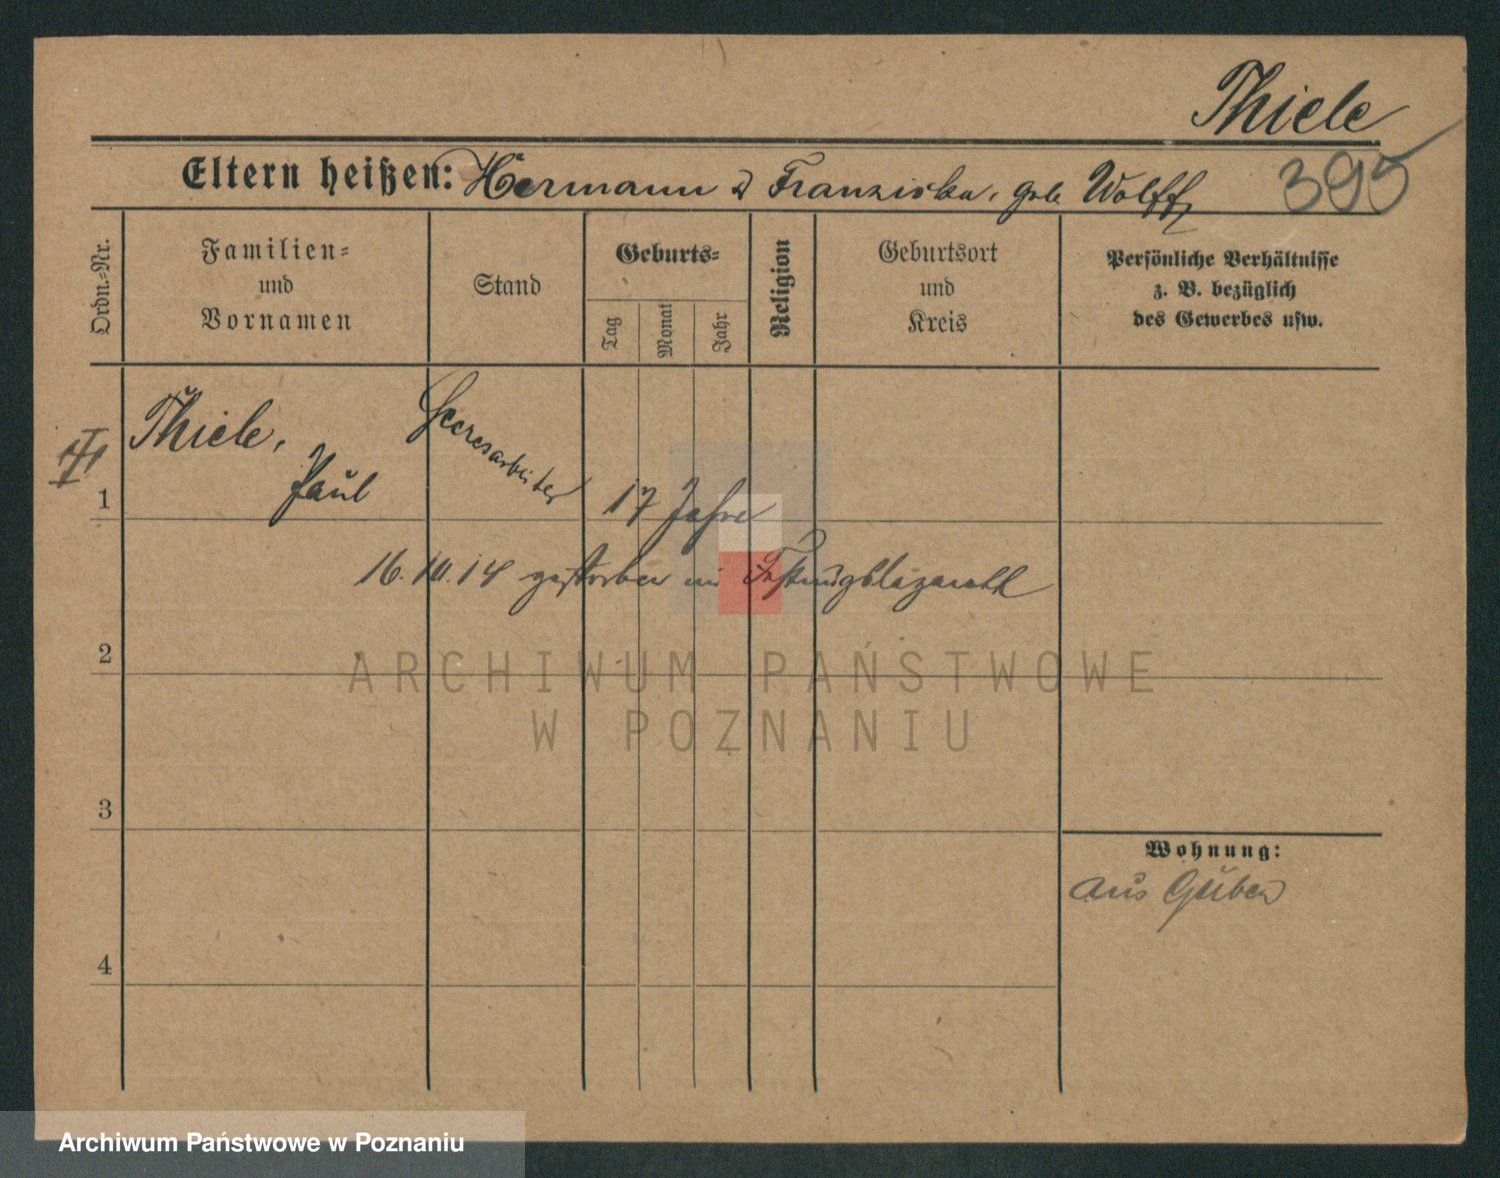 Thiele
395
Eltern heißen: Hermann & Franziska, geb Wolff
Ordn.-Nr.
Familien-
und
Vornamen
Stand
Geburts-
Tag
Monat
Jahr
Religion
Geburtsort
und
Kreis
Persönliche Verhältnisse
z. B. bezüglich
des Gewerbes usw.
Thiele,
Paul
Heeresarbeiter
17 Jahre
1
16.10.14 gestorben im Festungslazareth
2
ARCHIWUM PAŃSTWOWE
W POZNANIU
3
Wohnung:
aus Guben
4
Archiwum Państwowe w Poznaniu